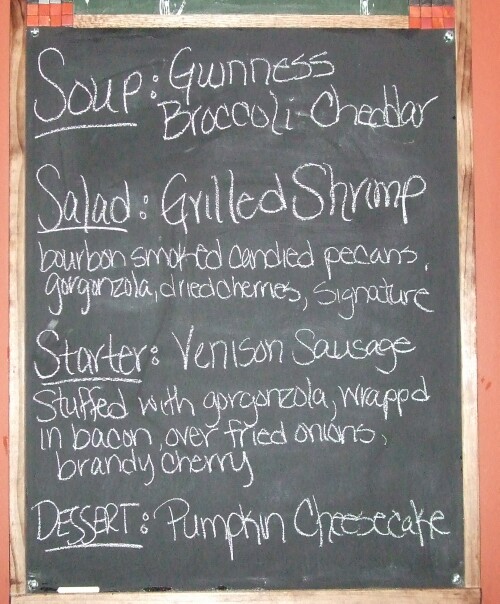 Soup: Guinness
Broccoli-Cheddar
Salad: Grilled Shrimp
bourbon smoked candied pecans,
gorgonzola, dried cherries, Signature
Starter: Venison Sausage
Stuffed with gorgonzola, wrapp'd
in bacon, over fried onions,
brandy cherry
DESSERT: Pumpkin Cheesecake